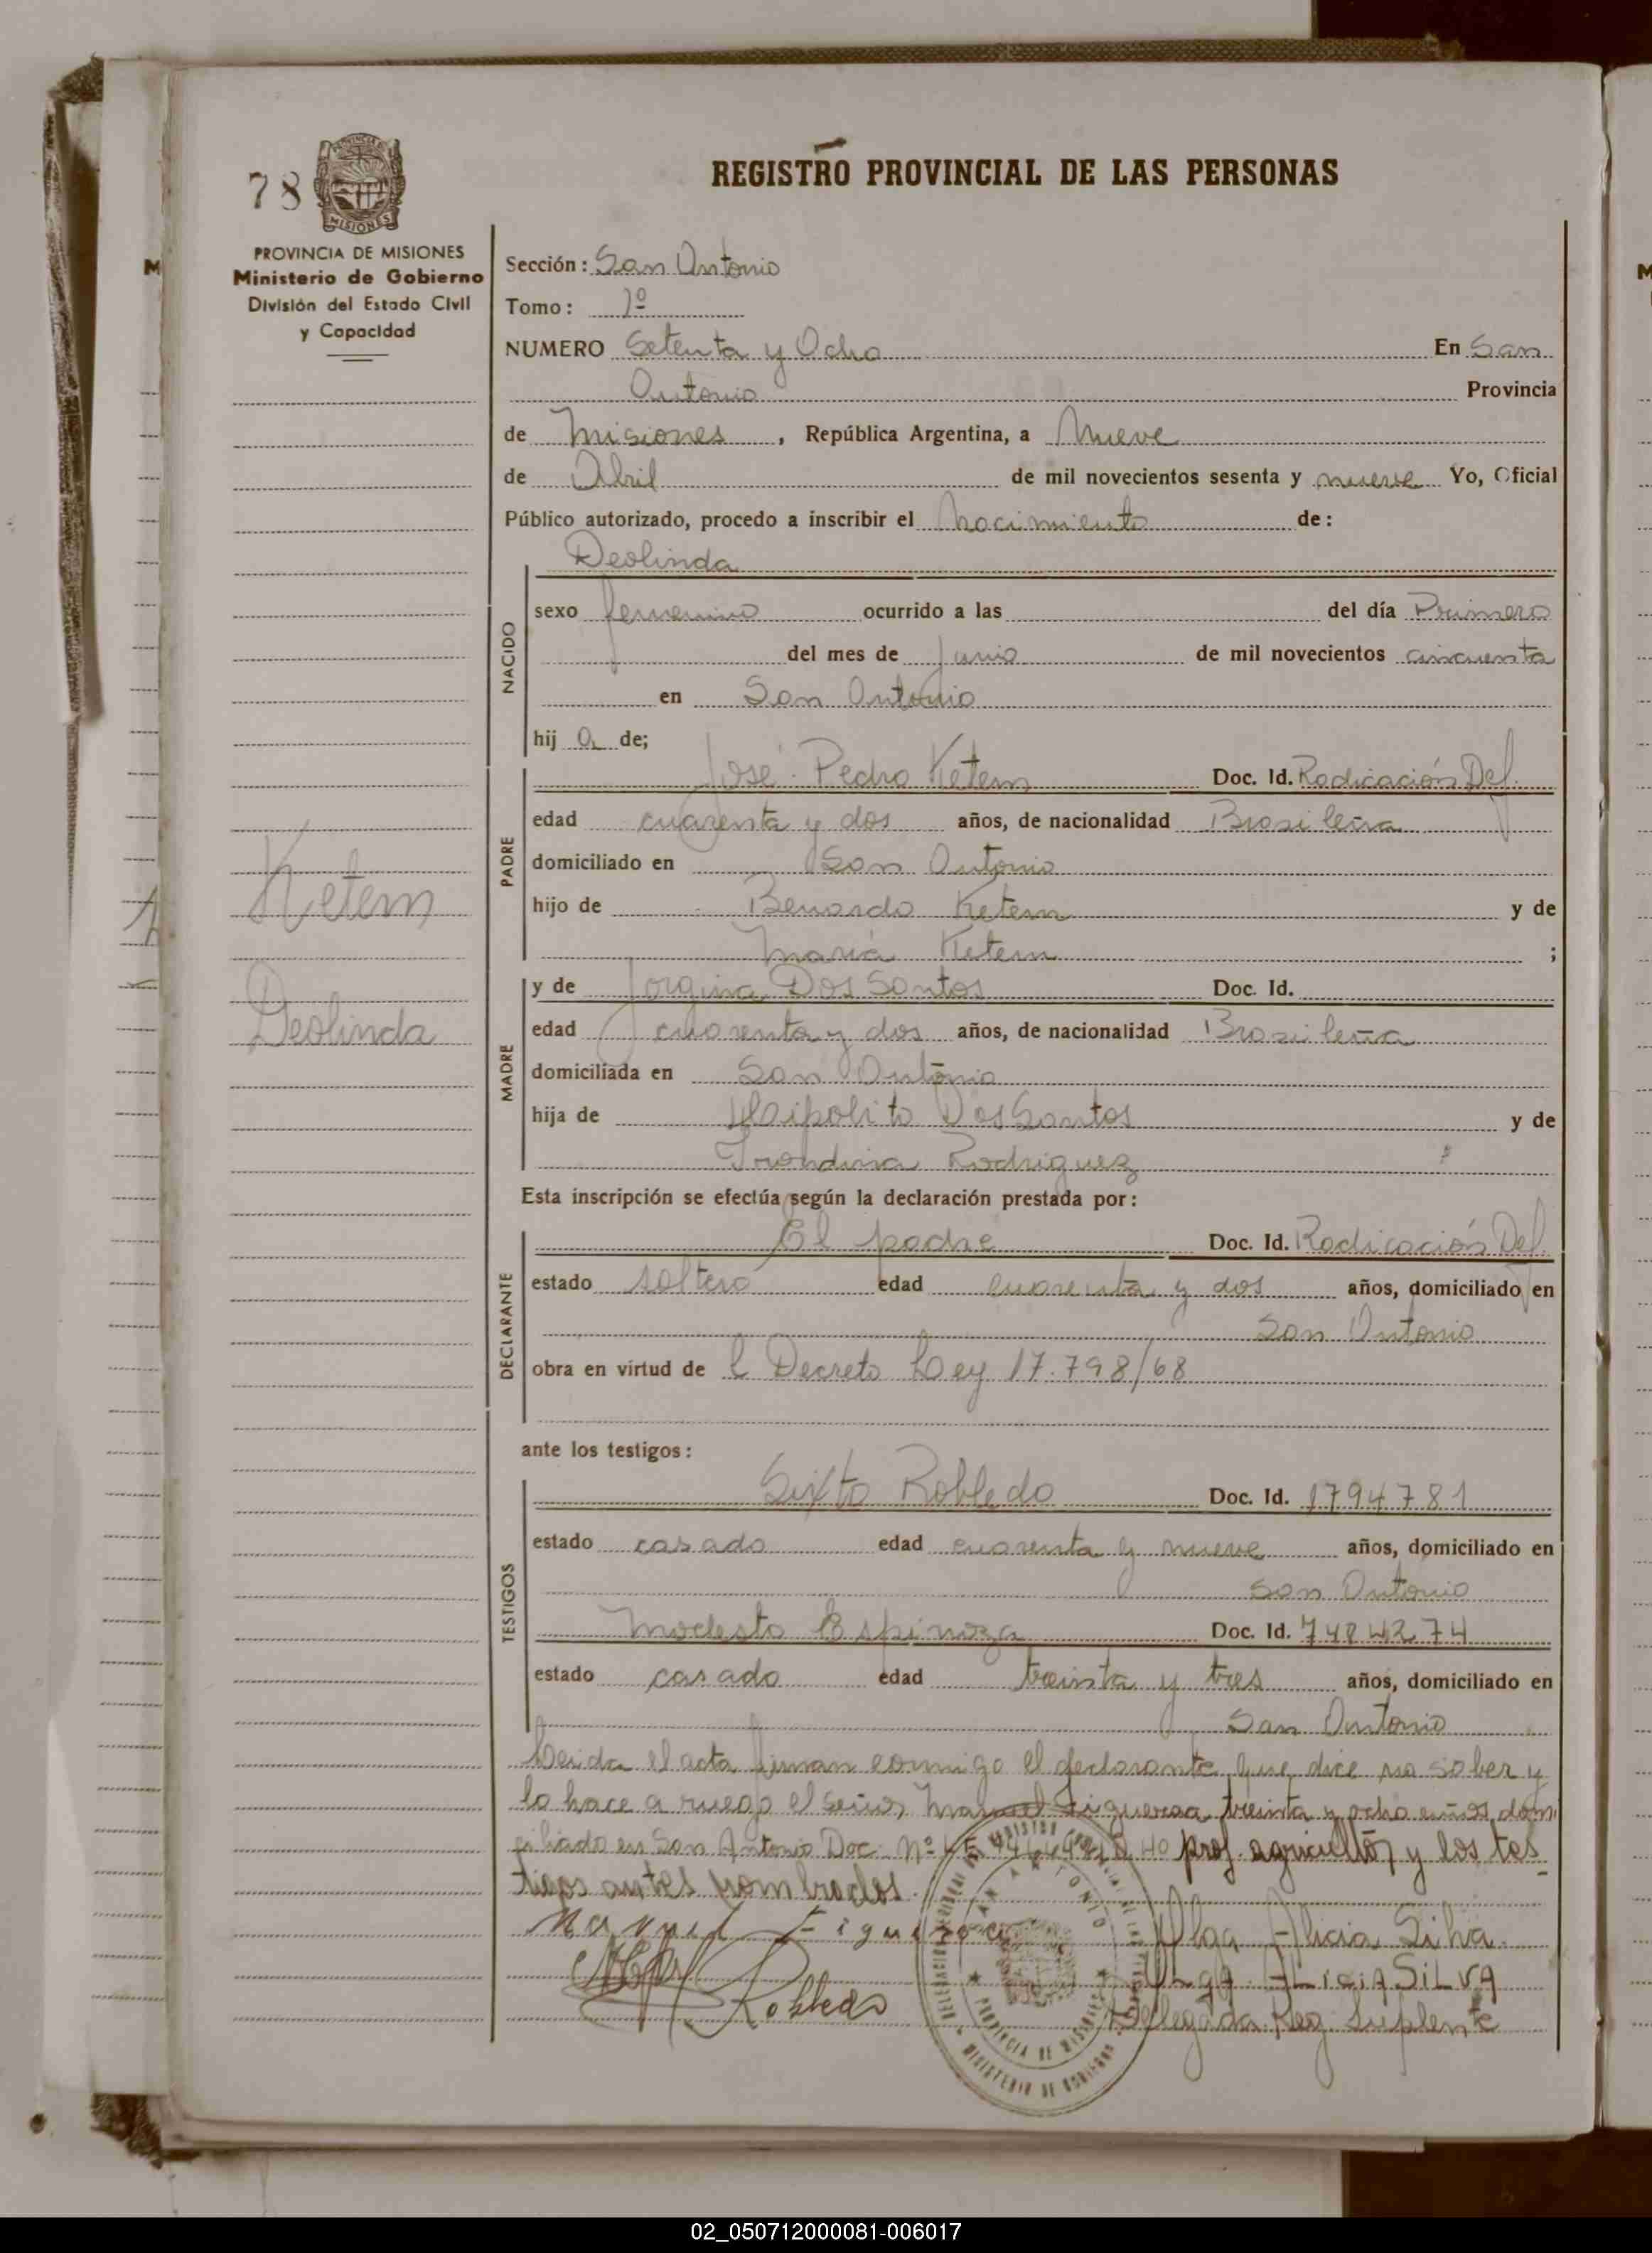 78
REGISTRO PROVINCIAL DE LAS PERSONAS
PROVINCIA DE MISIONES
Ministerio de Gobierno
División del Estado Civil
y Capacidad
Sección: San Antonio
Tomo: 1º
NUMERO Setenta y Ocho En San
Antonio Provincia
de Misiones, República Argentina, a Nueve
de Abril de mil novecientos sesenta y nueve Yo, Oficial
Público autorizado, procedo a inscribir el Nacimiento de:
Deolinda
NACIDO
sexo femenino ocurrido a las del día Primero
del mes de Junio de mil novecientos cincuenta
en San Antonio
hij a de;
PADRE
José Pedro Ketem Doc. Id. Radicación Def.
edad cuarenta y dos años, de nacionalidad Brasileña
domiciliado en San Antonio
hijo de Benardo Ketem y de
María Ketem ;
Ketem
Deolinda
MADRE
y de Jorgina Dos Santos Doc. Id.
edad cuarenta y dos años, de nacionalidad Brasileña
domiciliada en San Antonio
hija de Hipolito Dos Santos y de
Rodriguez
Esta inscripción se efectúa según la declaración prestada por:
DECLARANTE
El padre Doc. Id. Radicación Def.
estado soltero edad cuarenta y dos años, domiciliado en
San Antonio
obra en virtud de l Decreto Ley 17.798/68
ante los testigos:
TESTIGOS
Sixto Robledo Doc. Id. 1794781
estado casado edad cuarenta y nueve años, domiciliado en
San Antonio
Modesto Espinoza Doc. Id. 7484274
estado casado edad treinta y tres años, domiciliado en
San Antonio
Leida el acta firman conmigo el declarante que dice no saber y
lo hace a ruego el señor Manuel Figueroa treinta y ocho años dom
ciliado en San Antonio Doc. Nº prof. agricultor y los tes
tigos antes nombrados.
Manuel Figueroa
Olga Alicia Silva
Robledo
Olga Alicia Silva
Dellegada Reg. Suplente
SAN ANTONIO
PROVINCIA DE MISIONES
MINISTERIO DE GOBIERNO
02_050712000081-006017